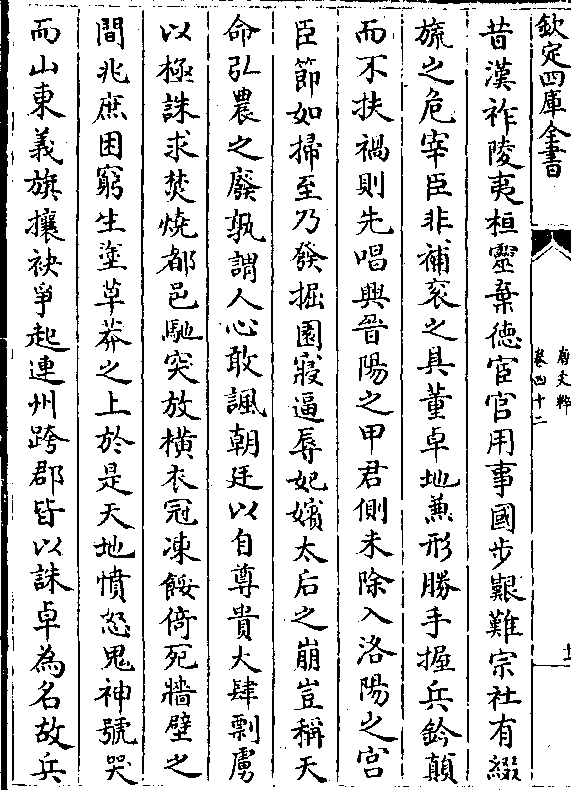 欽定四庫全書
唐文粹
卷四十二
昔漢祚陵夷桓靈棄德宦官用事國步艱難宗社有綴
旒之危宰臣非補衮之具董卓地兼形勝手握兵鈐顛
而不扶禍則先唱興晉陽之甲君側未除入洛陽之宮
臣節如掃至乃發掘園寢逼辱妃嬪太后之崩豈稱天
命弘農之廢孰謂人心敢諷朝廷以自尊貴大肆剽虜
以極誅求焚燒都邑馳突放橫衣冠凍餒倚死牆壁之
間兆庶困窮生塗草莽之上於是天地憤怒鬼神號哭
而山東義旗攘袂爭起連州跨郡皆以誅卓為名故兵